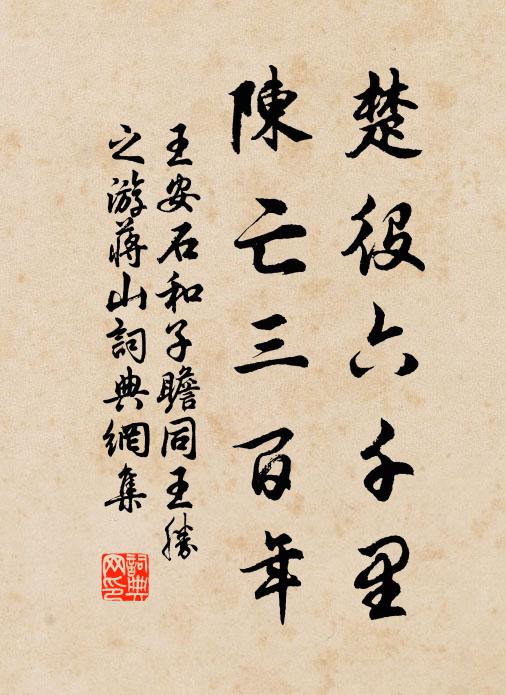 楚役六千里
陳亡三百年
王安石和子瞻同王勝
之游蔣山詞典網集
詞典
网印